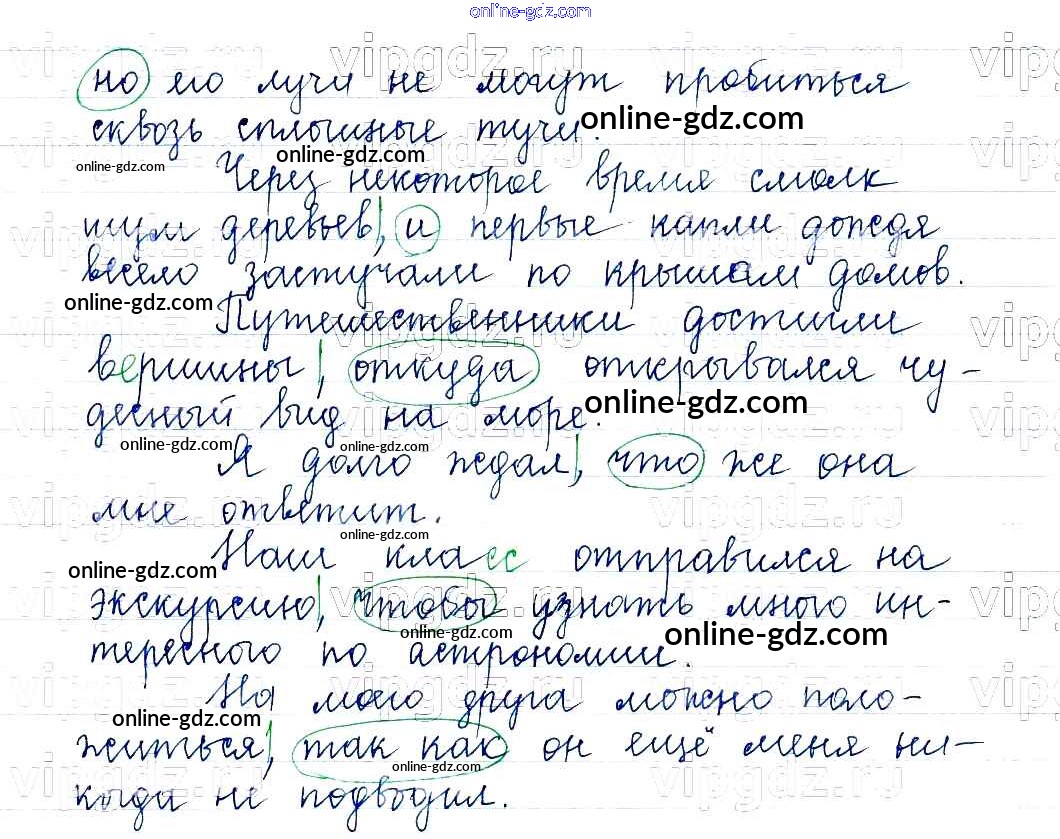 online-gdz.com
vipgdz.ru vipgdz.ru vip
но его лучи не могут пробиться
сквозь сплошные тучи. online-gdz.com
online-gdz.com online-gdz.com
Через некоторое время смолк
шум деревьев, и первые капли дождя
весело застучали по крышам домов.
online-gdz.com
Путешественники достигли
вершины, откуда открывался чу-
десный вид на море. online-gdz.com
online-gdz.com online-gdz.com
Я долго ждал, что же она
vipgdz.ru vipgdz.ru
мне ответит.
online-gdz.com
Наш класс отправился на
online-gdz.com
экскурсию, чтобы узнать много ин-
online-gdz.com online-gdz.com
тересного по астрономии.
На моего друга можно поло-
online-gdz.com
житься, так как он ещё меня ни-
online-gdz.com
когда не подводил.